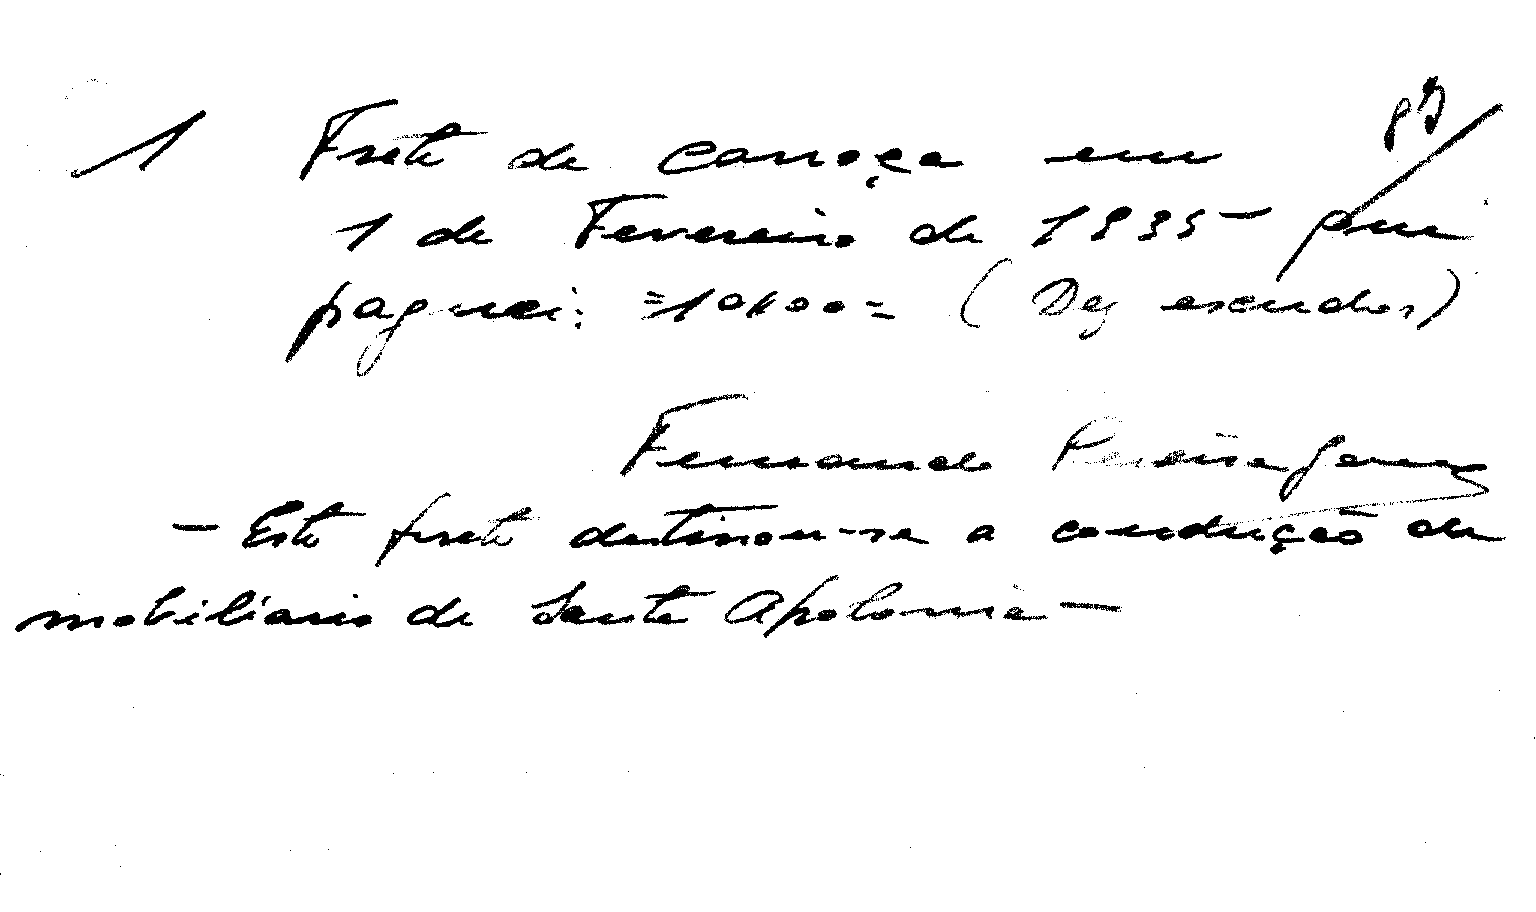 1 Frete de carroça em
1 de Fevereiro de 1935 — que
paguei: =10$00= (Dez escudos)
Fernando Pereira Gomes
— Este frete destinou-se a condução de
mobiliario de Santa Apolonia —